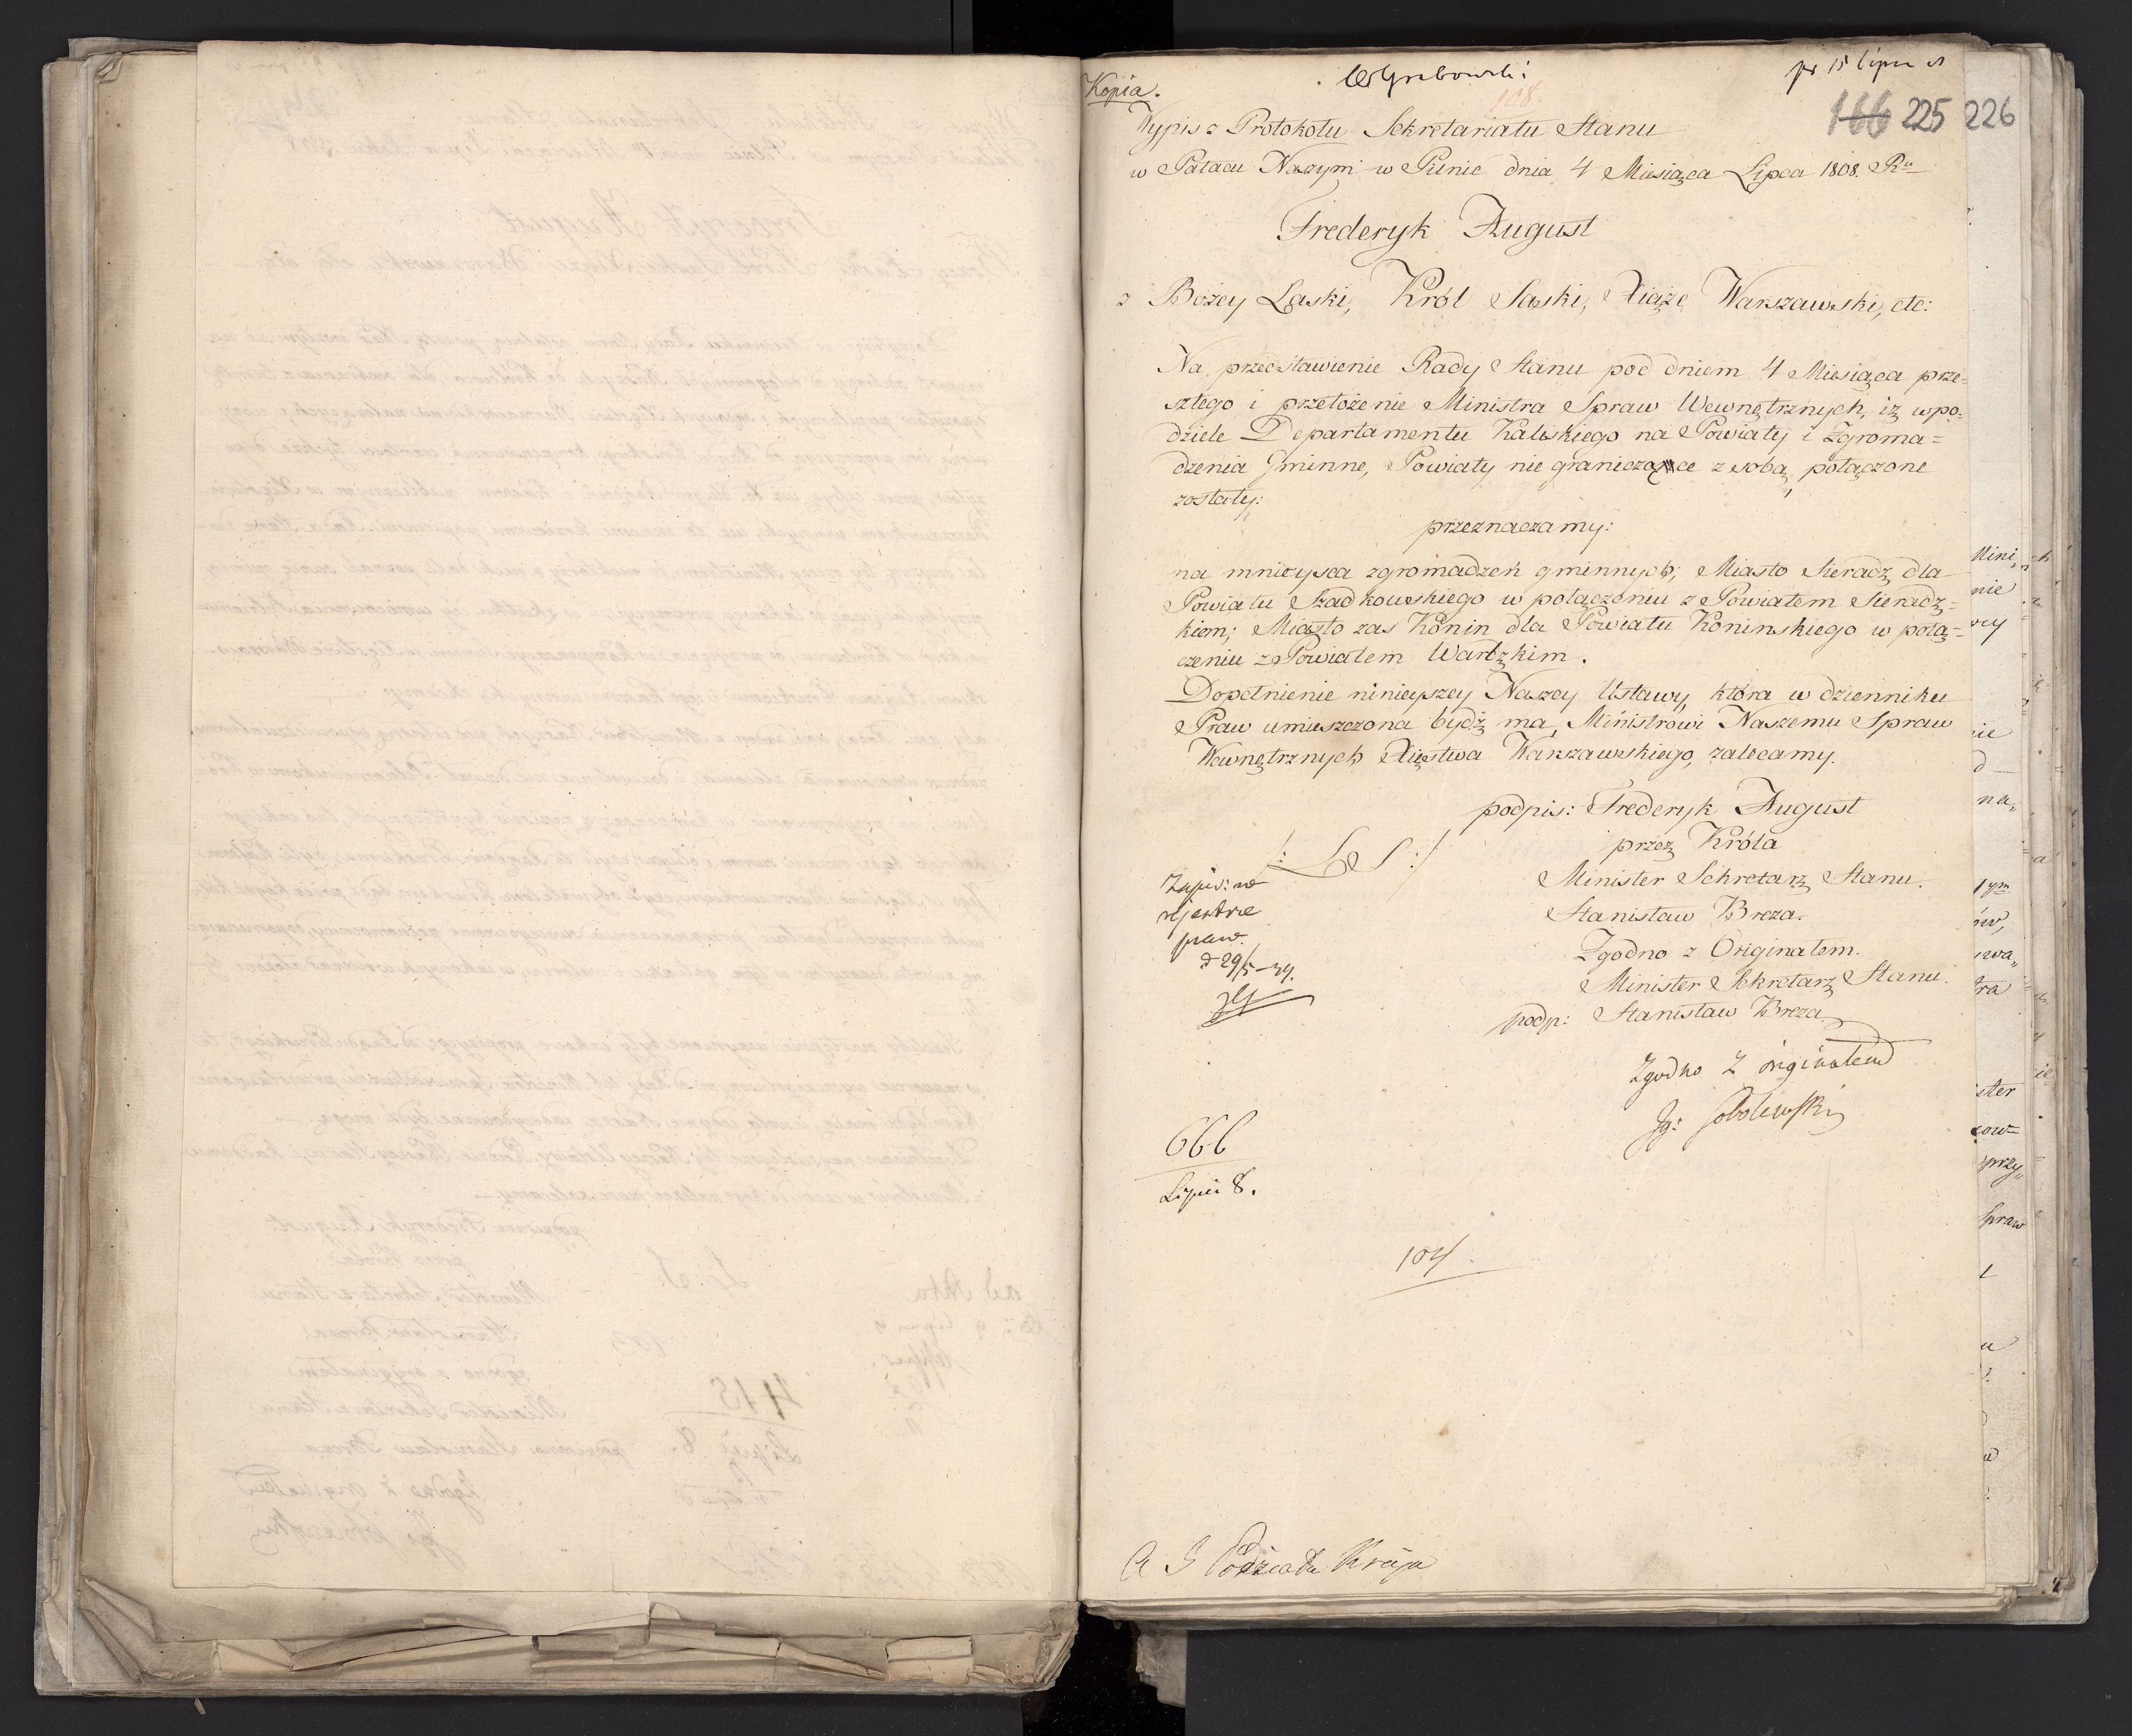 Kopia.
WGrabowski
pr 15 lipca
108.
166 225 226
Wypis z Protokołu Sekretariatu Stanu
w Pałacu Naszym w Pilnic dnia 4 Miesiąca Lipca 1808. Ru
Frederyk August
z Bożey Łaski, Król Saski, Xiąże Warszawski, etc:
Na przedstawienie Rady Stanu pod dniem 4 Miesiąca prze=
szłego i przełożenie Ministra Spraw Wewnętrznych, iż w po=
dziele Departamentu Kaliskiego na Powiaty i Zgroma=
dzenia Gminne, Powiaty nie graniczące z sobą, połączone
zostały:
przeznaczamy:
na mnieysca zgromadzeń gminnych; Miasto Sieradz dla
Powiatu Szadkowskiego w połączeniu z Powiatem Sieradz=
kiem; Miasto zas Konin dla Powiatu Koninskiego w połą=
czeniu z Powiatem Wartzkim.
Dopełnienie ninieyszey Naszey Ustawy, która w dzienniku
Praw umieszczona bydź ma, Ministrowi Naszemu Spraw
Wewnętrznych Xięstwa Warszawskiego, zalecamy.
podpis: Frederyk August
przez Króla
/: L S :/
Minister Sekretarz Stanu.
Stanisław Breza.
Zapis: w
rejestrze
praw.
d 29/5 – 39.
Zgodno z Originałem.
Minister Sekretarz Stanu.
podp: Stanisław Breza
Zgodno z originałem
Ig: Sobolewski
666
Lipca 8.
104.
A S Podziału Kraju